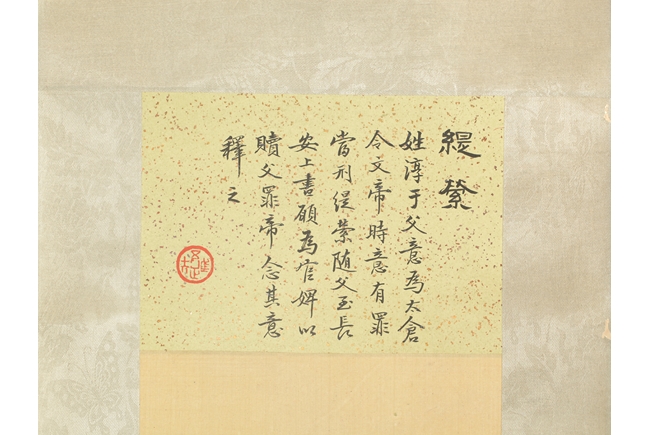 緹縈
姓淳于父意為太倉
令文帝時意有罪
當刑緹縈隨父至長
安上書願為官婢以
贖父罪帝念其意
釋之